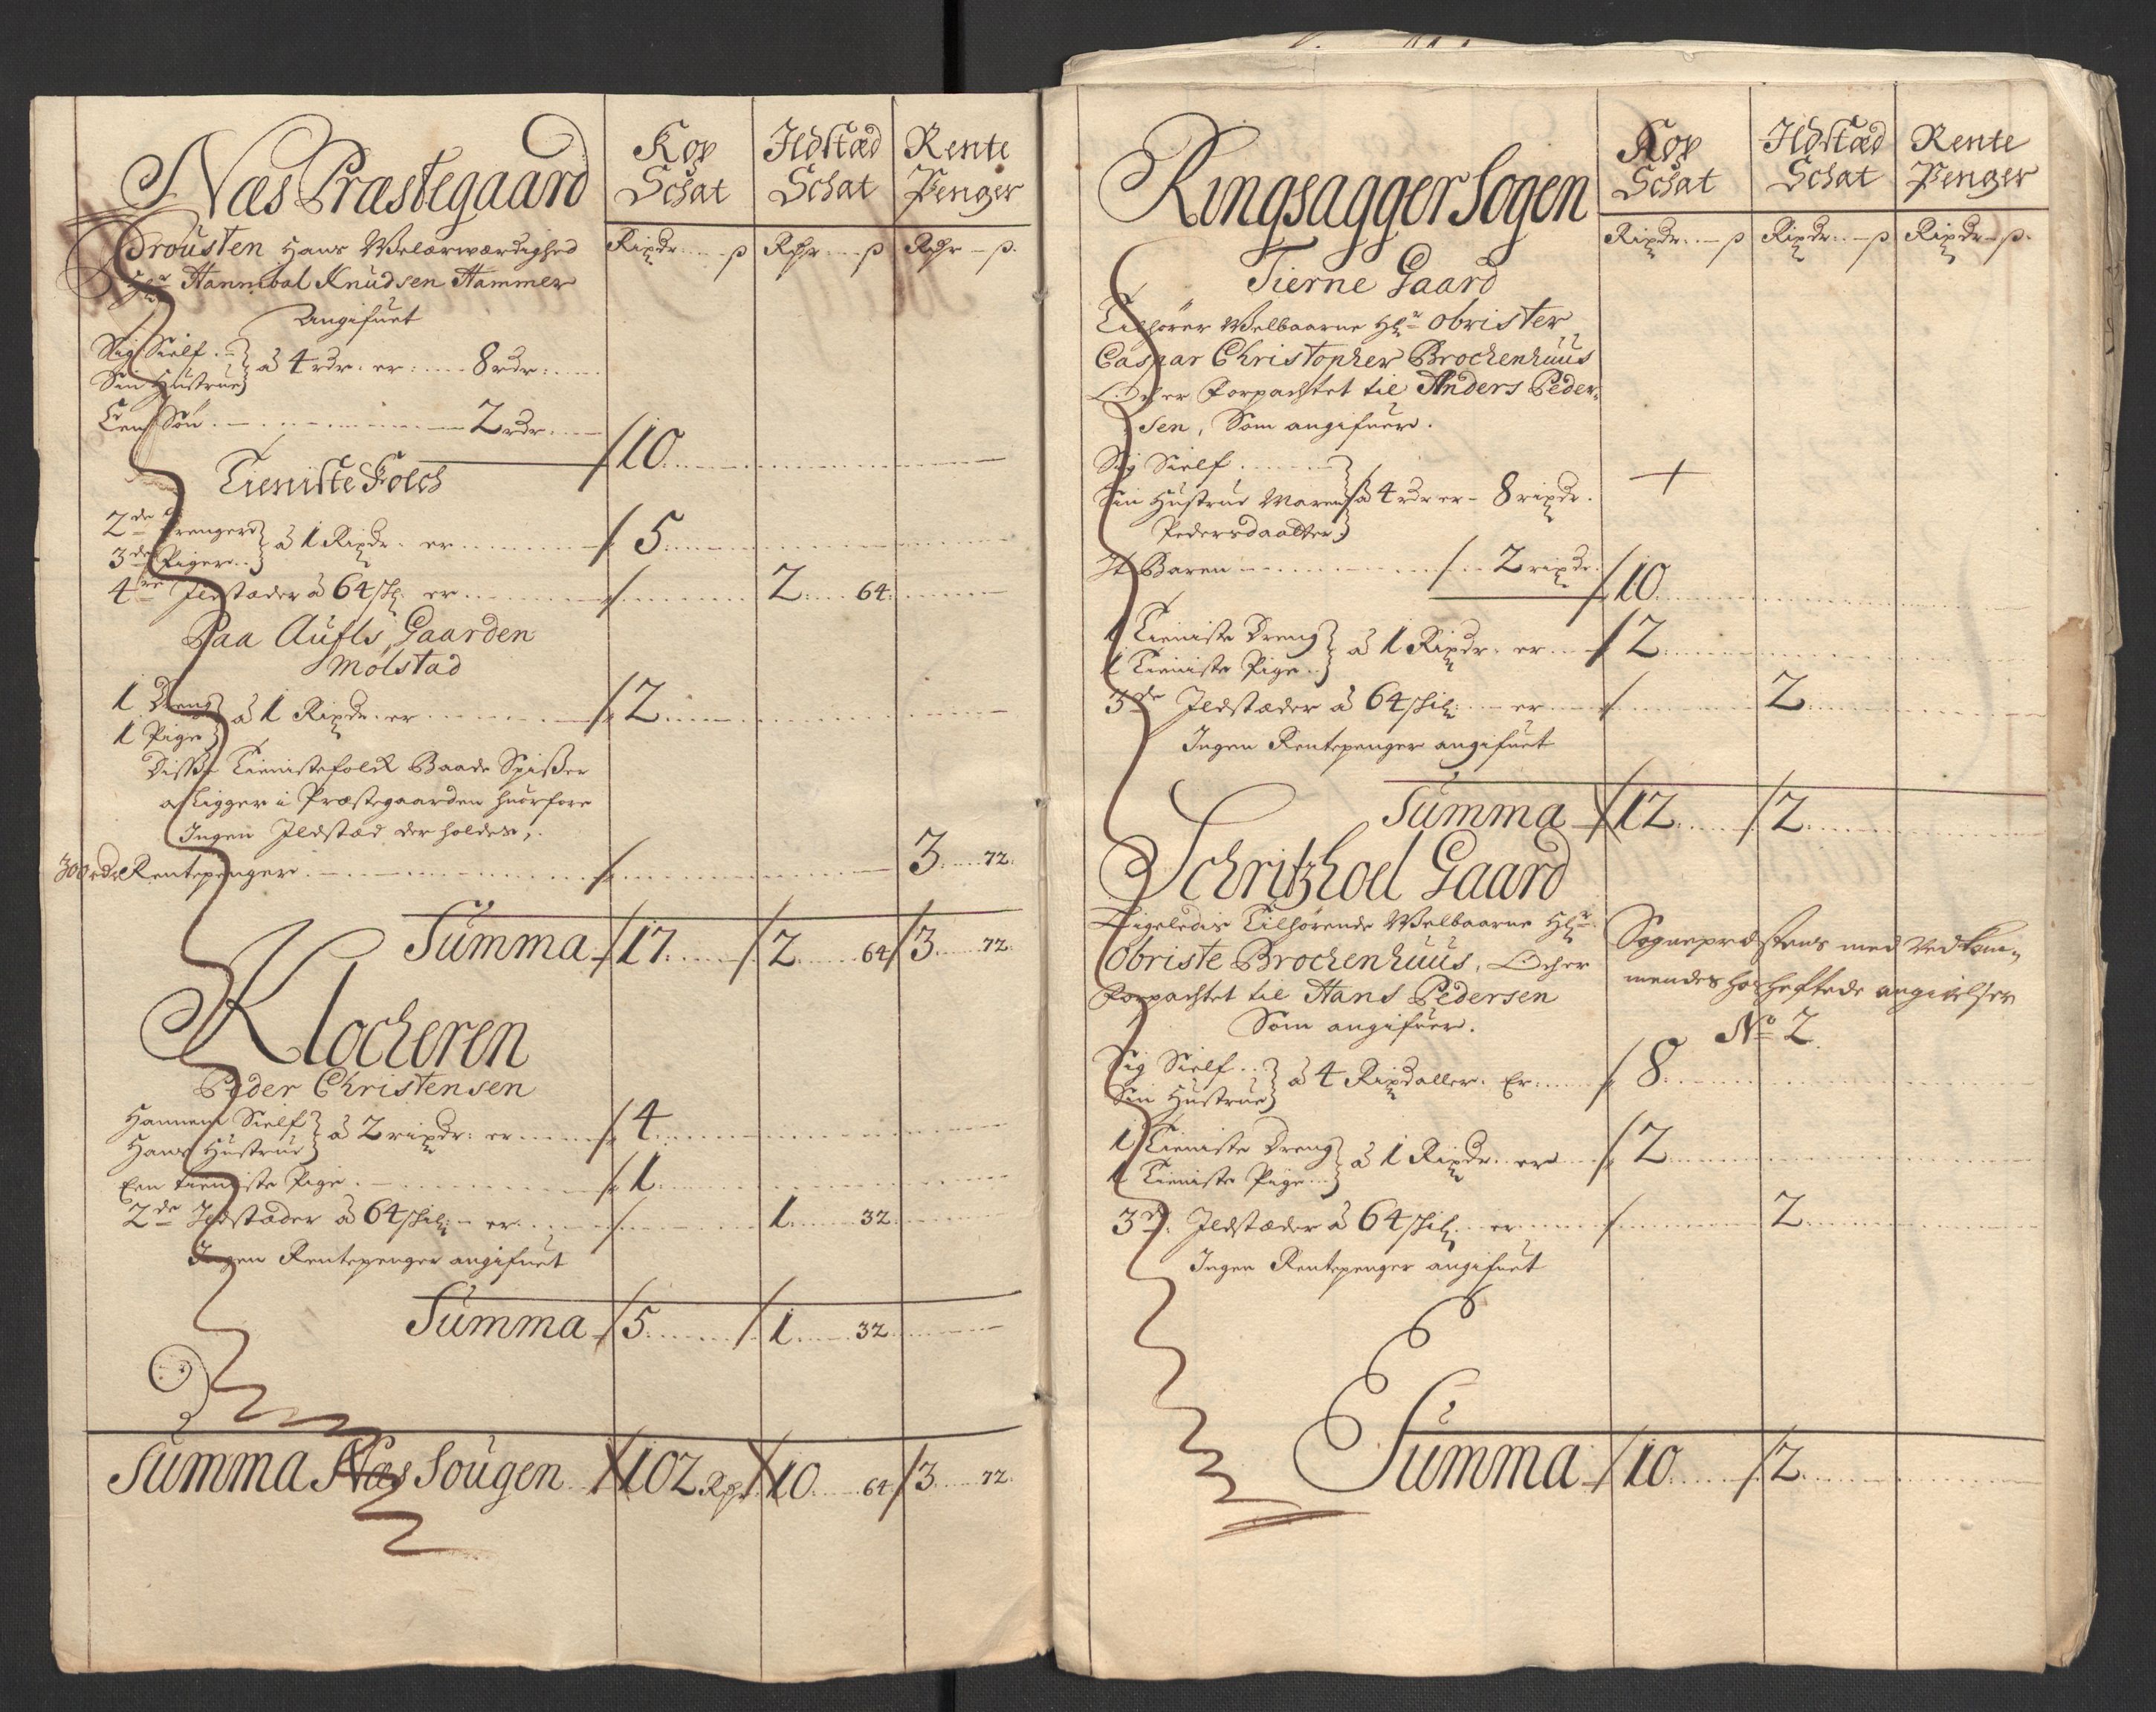 Næs Præstegaard
Kop Schat
Ildstæd Schat
Rente Penger
Prousten Hans Welærwærdighed
Ripdr. ß Rdr ß Rdr ß.
Hr Hannibal Knudsen Hammer
Angifuet
Sig Sielf
Sin Hustrue } â 4 rdr. er: 8 rdr:
Een Søn 2 rdr.
/10
Tieniste Folch
2de Drenger
3de Piger } â 1 Ripdr. er / 5
4re Ildstæder â 64 sk. er / 2 64
Paa Aufls Gaarden
Molstad
1 Dreng
1 Pige } â 1 Ripdr. er / 2
Disse Tienistefolck Baade Spisser
og Ligger i Præstegaarden huorfore
Ingen Ildstæd der holdes,
300 rdr Rentepenger / 3 72
Summa /17 /2 64 /3 72
Klocheren
Peder Christensen
Hannem Sielf
Hans Hustrue } â 2 ripdr: er / 4
Een tieniste Pige / 1
2de Ildstæder â 64 skil: er / 1 32
Ingen Rentepenger angifuet
Summa /5 /1 32
Summa Næs Sougen /102 Rdr /10 64 /3 72
Ringsagger Sogen
Kop Schat
Ildstæd Schat
Rente Penger
Ripdr. ß Ripdr. ß Ripdr ß.
Tierne Gaard
Tilhører Welbaarne Hr Obrister
Caspar Christopher Brochenhuus
Och er Forpachtet til Anders Peder-
sen, Som angifuer.
Sig Sielf
Sin Hustrue Maren
Pedersdaatter } â 4 rdr er - 8 ripdr. +
It Baren / 2 ripdr. /10
1 Tieniste Dreng
1 Tieniste Pige } â 1 Ripdr. er / 2
3de Ildstæder â 64 skil: er / 2
Ingen Rentepenger angifuet
Summa /12 /2
Schritzhoel Gaard
Ligeledis Tilhørende Welbaarne Hr
Obriste Brochenhuus, Och er
Forpachtet til Hans Pedersen
Som angifuer.
Sognepræstens med Vedkom-
mendes hos heftede angivelser
No 2.
Sig Sielf
Sin Hustrue } â 4 Ripdaller. Er / 8
1 Tieniste Dreng
1 Tieniste Pige } â 1 Ripdr. er / 2
3de Ildstæder â 64 skil: er / 2
Ingen Rentepenger angifuet
Summa /10 /2